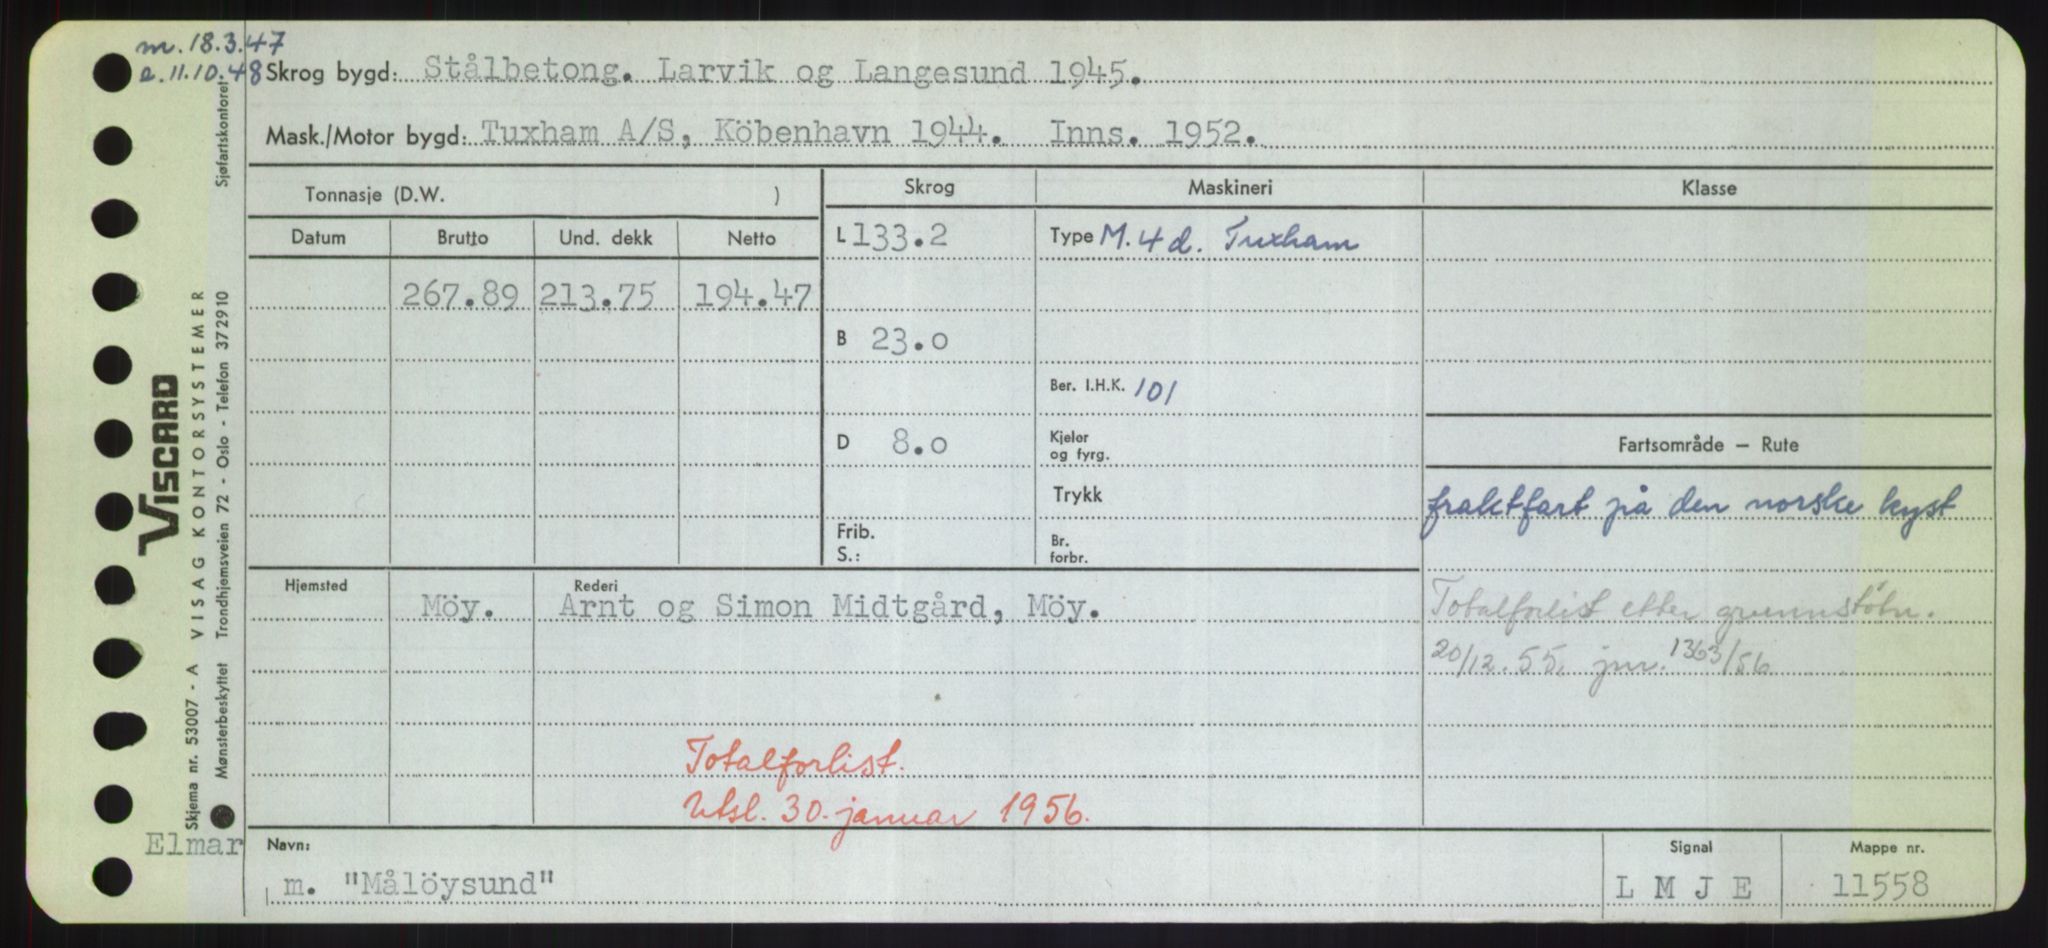 m. 18.3.47
e. 11.10.48
Skrog bygd: Stålbetong. Larvik og Langesund 1945.
Mask./Motor bygd: Tuxham A/S, Köbenhavn 1944. Inns. 1952.
Tonnasje (D.W. )
Skrog
Maskineri
Klasse
Datum Brutto Und. dekk Netto
L 133.2
Type M. 4 d. Tuxham
267.89 213.75 194.47
B 23.0
Ber. I.H.K. 101
D 8.0
Kjeler
og fyrg.
Fartsområde – Rute
Trykk
fraktfart på den norske kyst
Frib.
S.:
Br.
forbr.
Hjemsted
Rederi
Möy. Arnt og Simon Midtgård, Möy.
Totalforlist etter grunnstötn.
20/12.55. jnr. 1363/56
Totalforlist.
Utsl. 30. januar 1956.
Elmar
Navn:
m. "Målöysund"
Signal
L M J E
Mappe nr.
11558
VISCARD
Skjema nr. 53007 - A VISAG KONTORSYSTEMER
Mønsterbeskyttet Trondhjemsveien 72 - Oslo - Telefon 372910 Sjøfartskontoret